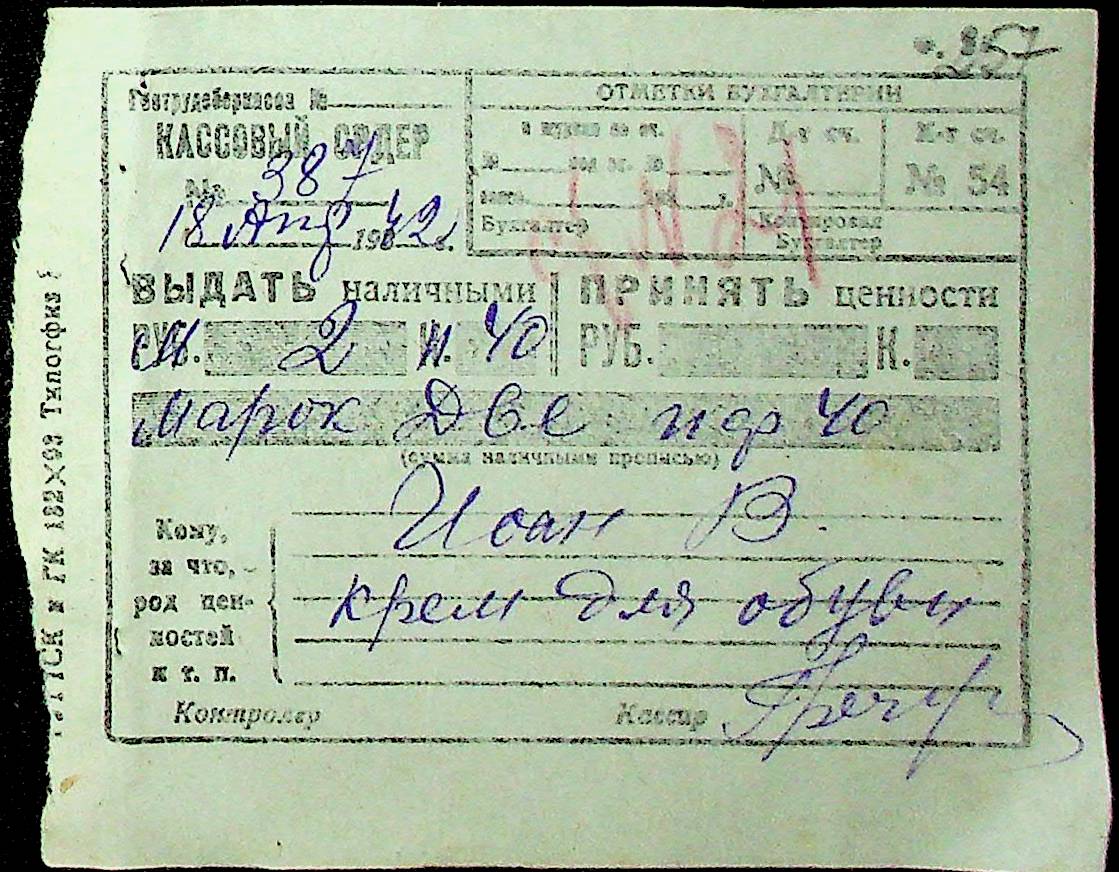 357
Гострудсберкасса №
КАССОВЫЙ ОРДЕР
№ 387
18 Апр 1942 г.
ОТМЕТКИ БУХГАЛТЕРИИ
Бухгалтер
Д-т сч.
№
К-т сч.
№ 54
Контировал
Бухгалтер
ВЫДАТЬ наличными
М. 2 п. 40
ПРИНЯТЬ ценности
РУБ. К.
марок Две пф 40
(сумма наличными прописью)
Кому,
за что,
род цен-
ностей
и т. п.
Иоан В.
крем для обуви
Контролер
Кассир
ГК 182×93 Типогфия